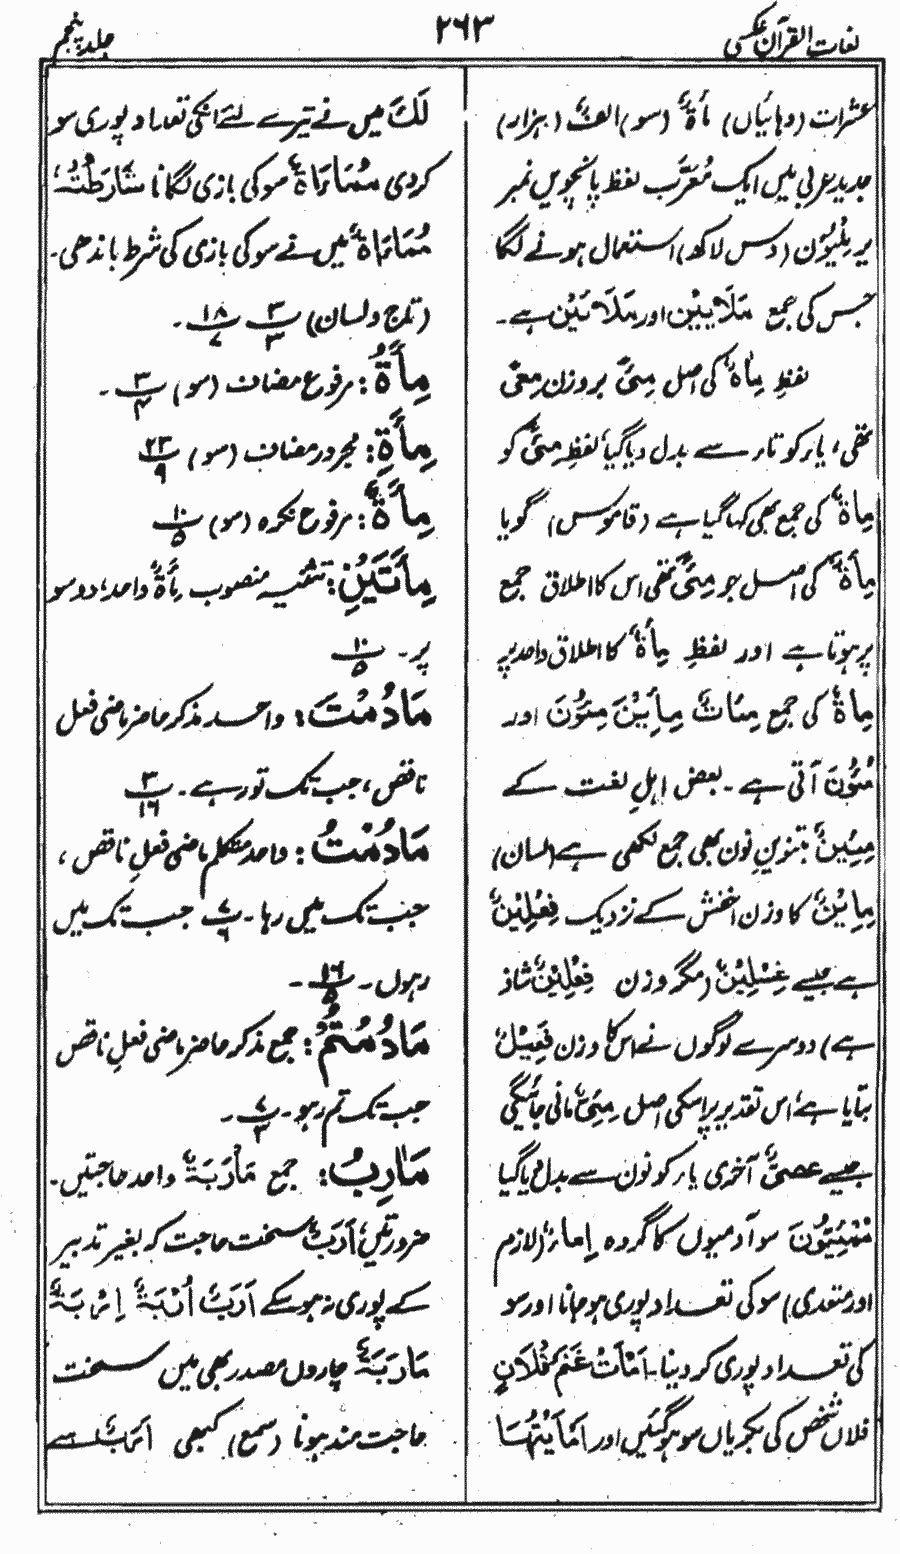 لغات القرآن عکسی
۲۶۳
جلد پنجم
عشرات (دہائیاں) مأۃٌ (سو) الفٌ (ہزار)
جدید عربی میں ایک مُعَرَّب لفظ پانچویں نمبر
پر بِلْیُون (دس لاکھ) استعمال ہونے لگا
جس کی جمع مَلَایِیْن اور مَلَائِیْن ہے۔
لفظِ مِاۃٌ کی اصل مِئیٌ بروزن مِعیٌ
تھی، یار کو تار سے بدل دیا گیا، لفظِ مِئیٌ کو
مِاۃٌ کی جمع بھی کہا گیا ہے (قاموس) گویا
مِأۃٌ کی اصل جو مِئیٌ تھی اس کا اطلاق جمع
پر ہوتا ہے اور لفظِ مِأۃٌ کا اطلاق واحد پر
مِاۃٌ کی جمع مِئَاتٌ مِأِیْنَ مِئُوْنَ اور
مُئُوْنَ آتی ہے۔ بعض اہلِ لغت کے
مِئِینٌ بتنوینِ نون بھی جمع لکھی ہے (لسان)
مِاِیْنٌ کا وزن اخفش کے نزدیک فِعْلِیْنٌ
ہے جیسے غِسْلِیْنٌ (مگر وزن فِعْلِیْنٌ شاذ
ہے) دوسرے لوگوں نے اس کا وزن فِعِیْلٌ
بتایا ہے، اس تقدیر پر اسکی اصل مِئِیٌّ مانی جائیگی
جیسے عصیٌّ آخری یار کو نون سے بدل دیا گیا
مِئِیُّوْنَ سو آدمیوں کا گروہ اِماءٌ (لازم
اور متعدی) سو کی تعداد پوری ہو جانا اور سو
کی تعداد پوری کر دینا۔ اَمْأَتْ غَنَمُ فُلَانٍ
فلاں شخص کی بکریاں سو ہو گئیں اور اَمْأَیْتُهَا
لَکَ میں نے تیرے لئے انکی تعداد پوری سو
کر دی مُمَاءَاۃٌ سو کی بازی لگانا شَارَطْتُہٗ
مُمَاءَاۃً میں نے سو کی بازی کی شرط باندھی۔
(تاج ولسان) ۳/۳ ۱۸/۷۔
مِأَۃُ: مرفوع مضاف (سو) ۳/۴۔
مِأَۃِ: مجرور مضاف (سو) ۲۳/۹
مِأَۃٌ: مرفوع نکرہ (سو) ۱۰/۵
مِأَتَیْنِ: تثنیہ منصوب مِأۃٌ واحد، دو سو
پر۔ ۱۰/۵
مَادُمْتَ: واحد مذکر حاضر ماضی فعل
ناقص، جب تک تو رہے۔ ۳/۱۶
مَادُمْتُ: واحد متکلم ماضی فعلِ ناقص،
جب تک میں رہا۔ ۷/۶ جب تک میں
رہوں۔ ۱۶/۵۔
مَادُمْتُمْ: جمع مذکر حاضر ماضی فعلِ ناقص
جب تک تم رہو۔ ۷/۳۔
مَاٰرِبُ: جمع مَأْرَبَۃٌ واحد حاجتیں۔
ضرورتیں، اَرَبٌ سخت حاجت کہ بغیر تدبیر
کے پوری نہ ہو سکے اَرَبٌ اُرْبَۃٌ اِرْبَۃٌ
مَأرَبَۃٌ چاروں مصدر بھی ہیں سخت
حاجت مند ہونا (سمع) کبھی اَرَبٌ سے